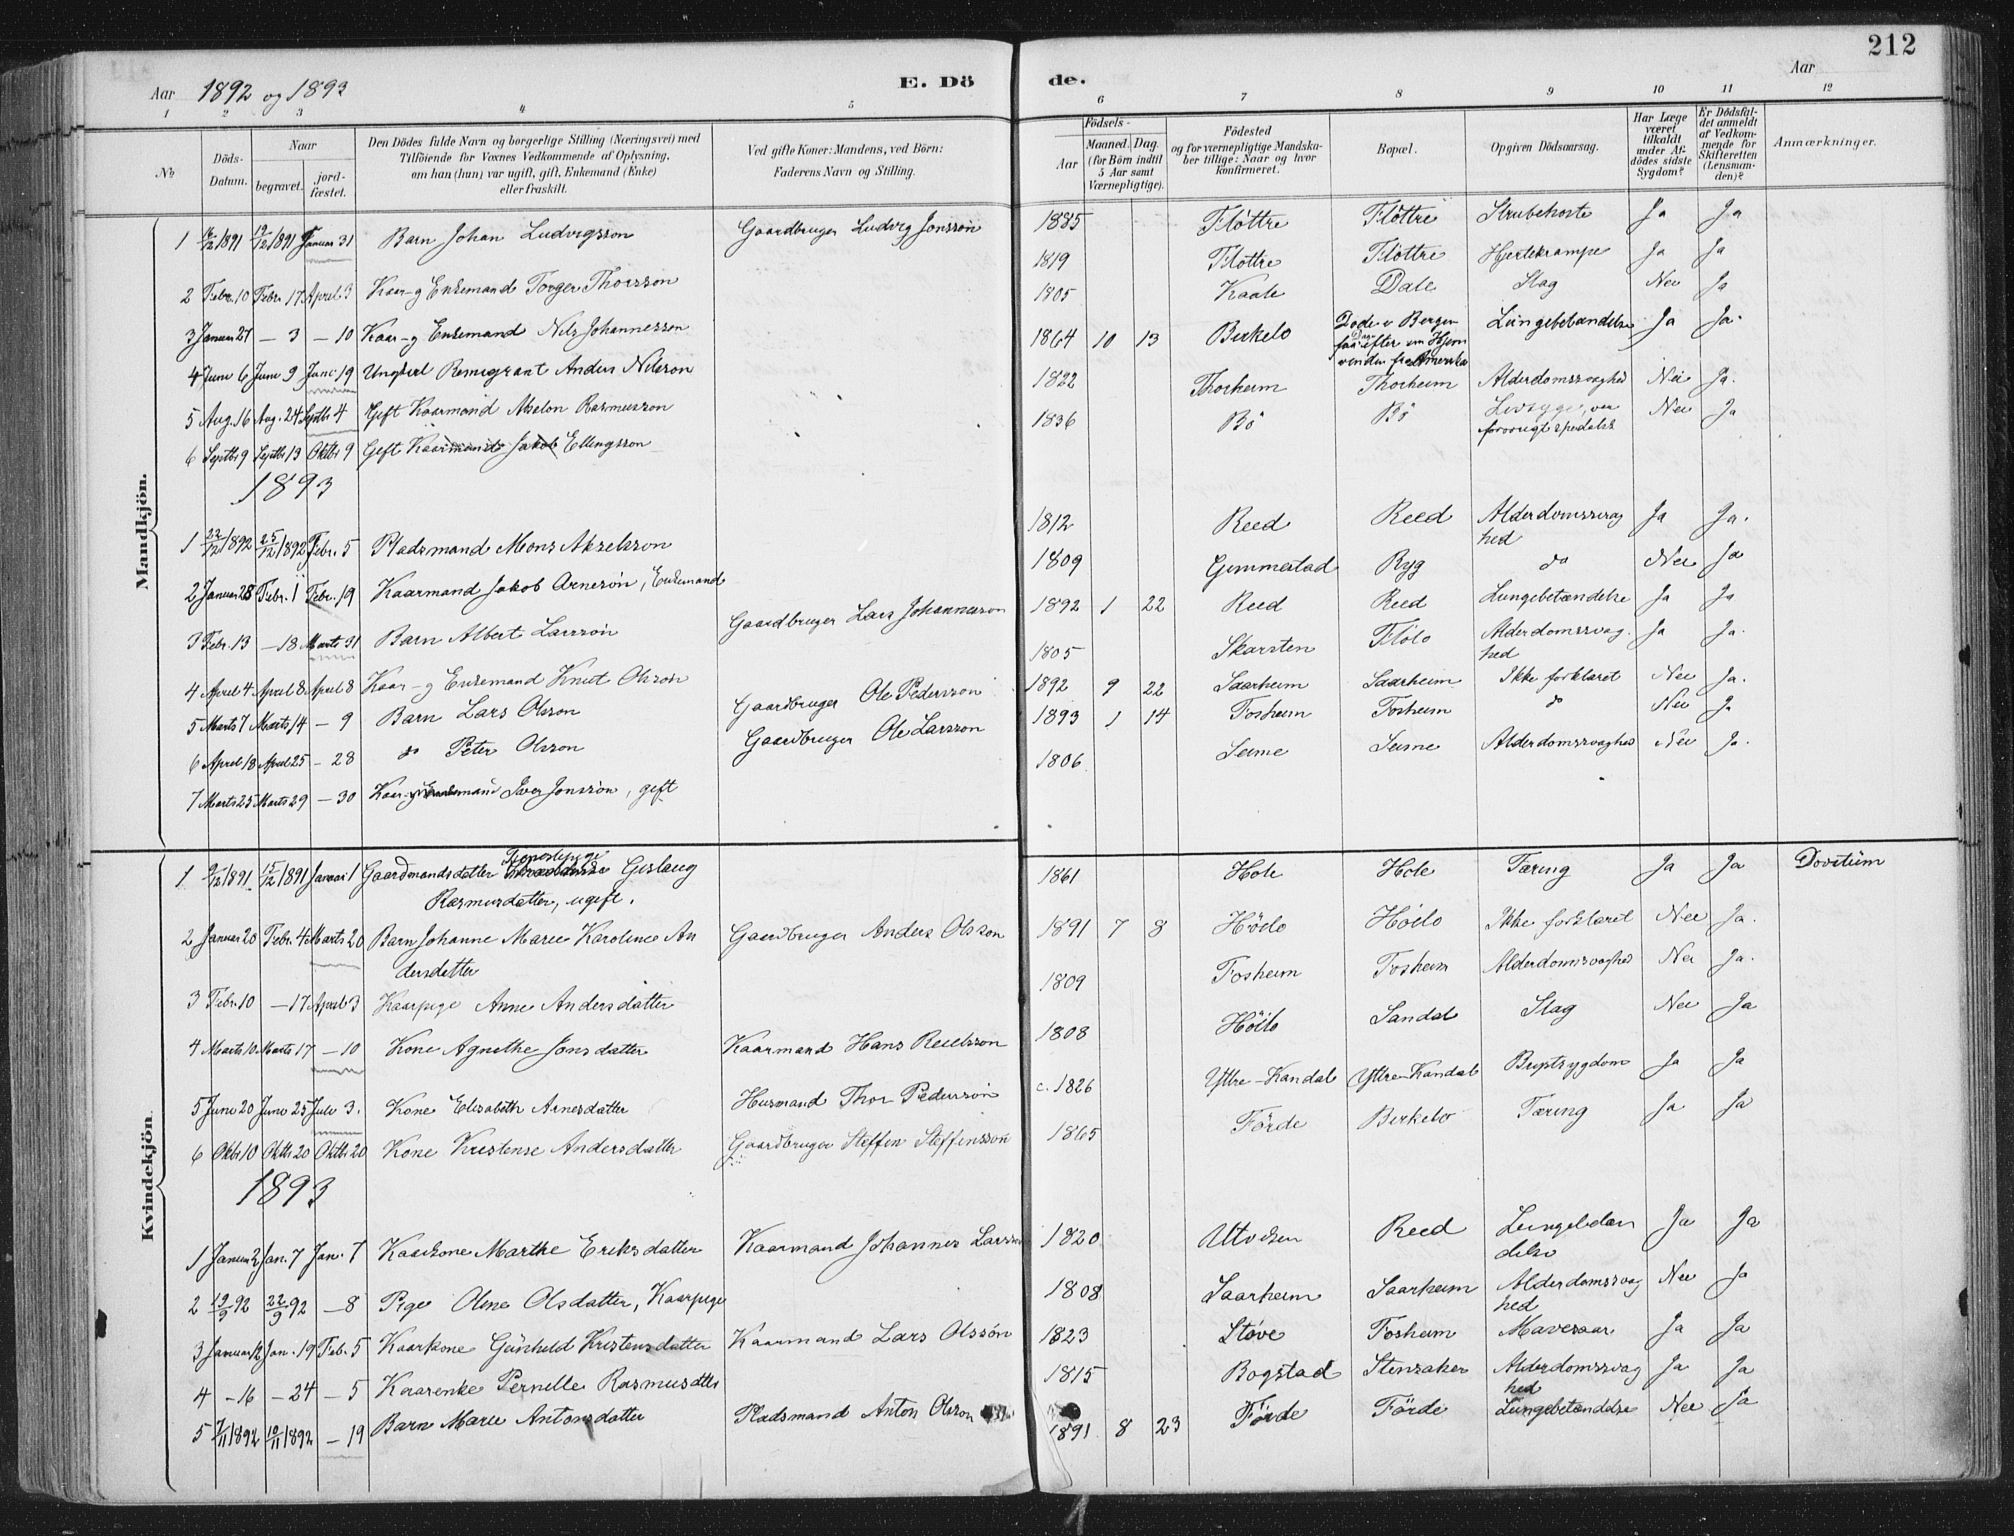 212
Aar 1892 og 1893
E. Dö de.
Aar
1 2 3 4 5 6 7 8 9 10 11 12
No
Döds-Datum.
Naar
begravet.
jord-fæstet.
Den Dödes fulde Navn og borgerlige Stilling (Næringsvei) med
Tilföiende for Voxnes Vedkommende af Oplysning,
om han (hun) var ugift, gift, Enkemand (Enke)
eller fraskilt.
Ved gifte Koner: Mandens, ved Börn:
Faderens Navn og Stilling.
Födsels-
Aar
Maaned. Dag.
(for Börn indtil
5 Aar samt
Værnepligtige).
Födested
og for værnepligtige Mandska-
ber tillige: Naar og hvor
konfirmeret.
Bopæl.
Opgiven Dödsaarsag.
Har Læge
været
tilkaldt
under Af-
dödes sidste
Sygdom?
Er Dödsfal-
det anmeldt
af Vedkom-
mende for
Skifteretten
(Lensman-
den)?
Anmærkninger.
Mandkjön.
1 12/1891 19/12 1891 Januar 31 Barn Johan Ludvigsson Gaardbruger Ludvig Jonsson 1885 Flöttre Flöttre Strubehoste Ja Ja
2 Febr. 10 Febr. 17 April 3 Kaar- og Enkemand Torger Thorsson 1819 Flöttre Flöttre Hjertekrampe Ja Ja
3 Januar 27 — 3 — 10 Kaar- og Enkemand Nils Johannesson 1805 Kaale Dale Slag Nei Ja
4 Juni 6 Juni 9 Juni 19 Ungkarl Remigrant Anders Nilsson 1864 10 13 Birkelo Döde i Bergen faa Dage efter sin Hjemvenden fra Amerika Lungebetændelse Ja Ja.
5 Aug. 16 Aug. 24 Septbr 4 Gift Kaarmand Absalon Rasmusson 1822 Thorheim Thorheim Alderdomssvaghed Nei Ja.
6 Septbr 9 Septbr 13 Oktbr 9 Gift Kaarmand Jakob Ellingsson 1836 Bö Bö var forövrigt spedalsk Nei Ja
1893
1 22/12 1892 25/12 1892 Febr. 5 Pladsmand Mons Akselsson 1812 Reed Reed Alderdomssvaghed Ja Ja.
2 Januar 28 Febr. 1 Febr. 19 Kaarmand Jakob Arnesön, Enkemand 1809 Gimmestad Ryg do Nei Ja
3 Febr. 13 — 18 Marts 31 Barn Albert Larssön Gaardbruger Lars Johannesson 1892 1 22 Reed Reed Lungebetændelse Ja Ja
4 April 4 April 8 April 8 Kaar- og Enkemand Knut Olsson 1805 Skarsten Flölo Alderdomssvaghed Ja Ja.
5 Marts 7 Marts 14 — 9 Barn Lars Olsson Gaardbruger Ole Pedersson 1892 9 22 Saarheim Saarheim Ikke forklaret Nei Ja.
6 April 18 April 25 — 28 do Peter Olsson Gaardbruger Ole Larsson 1893 1 14 Fosheim Fosheim do Nei J
7 Marts 25 Marts 29 — 30 Kaar- og Enkemand Iver Jonsson, gift 1806 Seime Seime Alderdomssvaghed Nei Ja.
Kvindekjön.
1 9/12 1891 15/12 1891 Januar 1 Gaardmandsdatter Tjenestepige Gislaug Rasmusdatter, ugift. 1861 Hole Hole Tæring Ja Ja Dovstum
2 Januar 20 Febr. 4 Marts 20 Barn Johanne Marie Karoline Andersdatter Gaardbruger Anders Olsson 1891 7 8 Höilo Höilo Ikke forklaret Nei Ja.
3 Febr. 10 — 17 April 3 Kaarpige Anne Andersdatter 1809 Fosheim Fosheim Alderdomssvaghed Nei Ja.
4 Marts 10 Marts 17 — 10 Kone Agnethe Jonsdatter Kaarmand Hans Reielsson 1808 Höilo Sandal Slag Nei Ja
5 Juni 20 Juni 25 Juli 3. Kone Elisabeth Arnesdatter Husmand Thor Pedersson c. 1826 Yttre-Kandal Yttre-Kandal Brystsygdom Ja Ja
6 Oktbr 10 Oktbr 20 Oktbr 20 Kone Kristense Andersdatter Gaardbruger Steffen Steffensson 1865 Förde Birkelo Tæring Ja Ja
1893
1 Januar 2 Jan. 7 Jan. 7 Kaarkone Marthe Eriksdatter Kaarmand Johannes Larsson 1820 Utviken Reed Lungebetændelse Ja Ja
2 19/9 92 22/9 92 — 8 Pige Oline Olsdatter, Kaarpige 1808 Saarheim Saarheim Alderdomssvaghed Nei Ja
3 Januar 12 Jan. 19 Feb. 5 Kaarkone Gunhild Kristensdatter Kaarmand Lars Olsson 1823 Stöve Fosheim Mavesaar Ja Ja
4 — 16 — 24 — 5 Kaarenke Pernille Rasmusdtr 1815 Bogstad Stensaker Alderdomssvaghed Ja Ja
5 7/11 1892 10/11 1892 — 19 Barn Marie Antonsdatter Pladsmand Anton Olsson 1891 8 23 Förde Förde Lungebetændelse Nei Ja